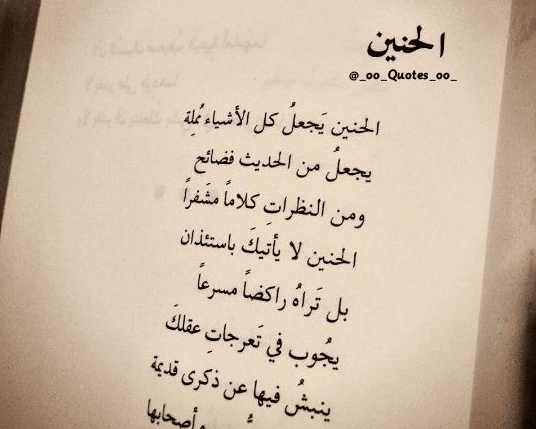 الحنين
@_oo_Quotes_oo_
الحنين يَجعلُ كل الأشياء مُملِة
يجعلُ من الحديث فضائح
ومن النظراتِ كلاماً مشَفراً
الحنين لا يأتيكَ باستئذان
بل تَراهُ راكضاً مسرعاً
يجُوب في تَعرجاتِ عقلكَ
ينبشُ فيها عن ذكرى قديمة
وأصحابها